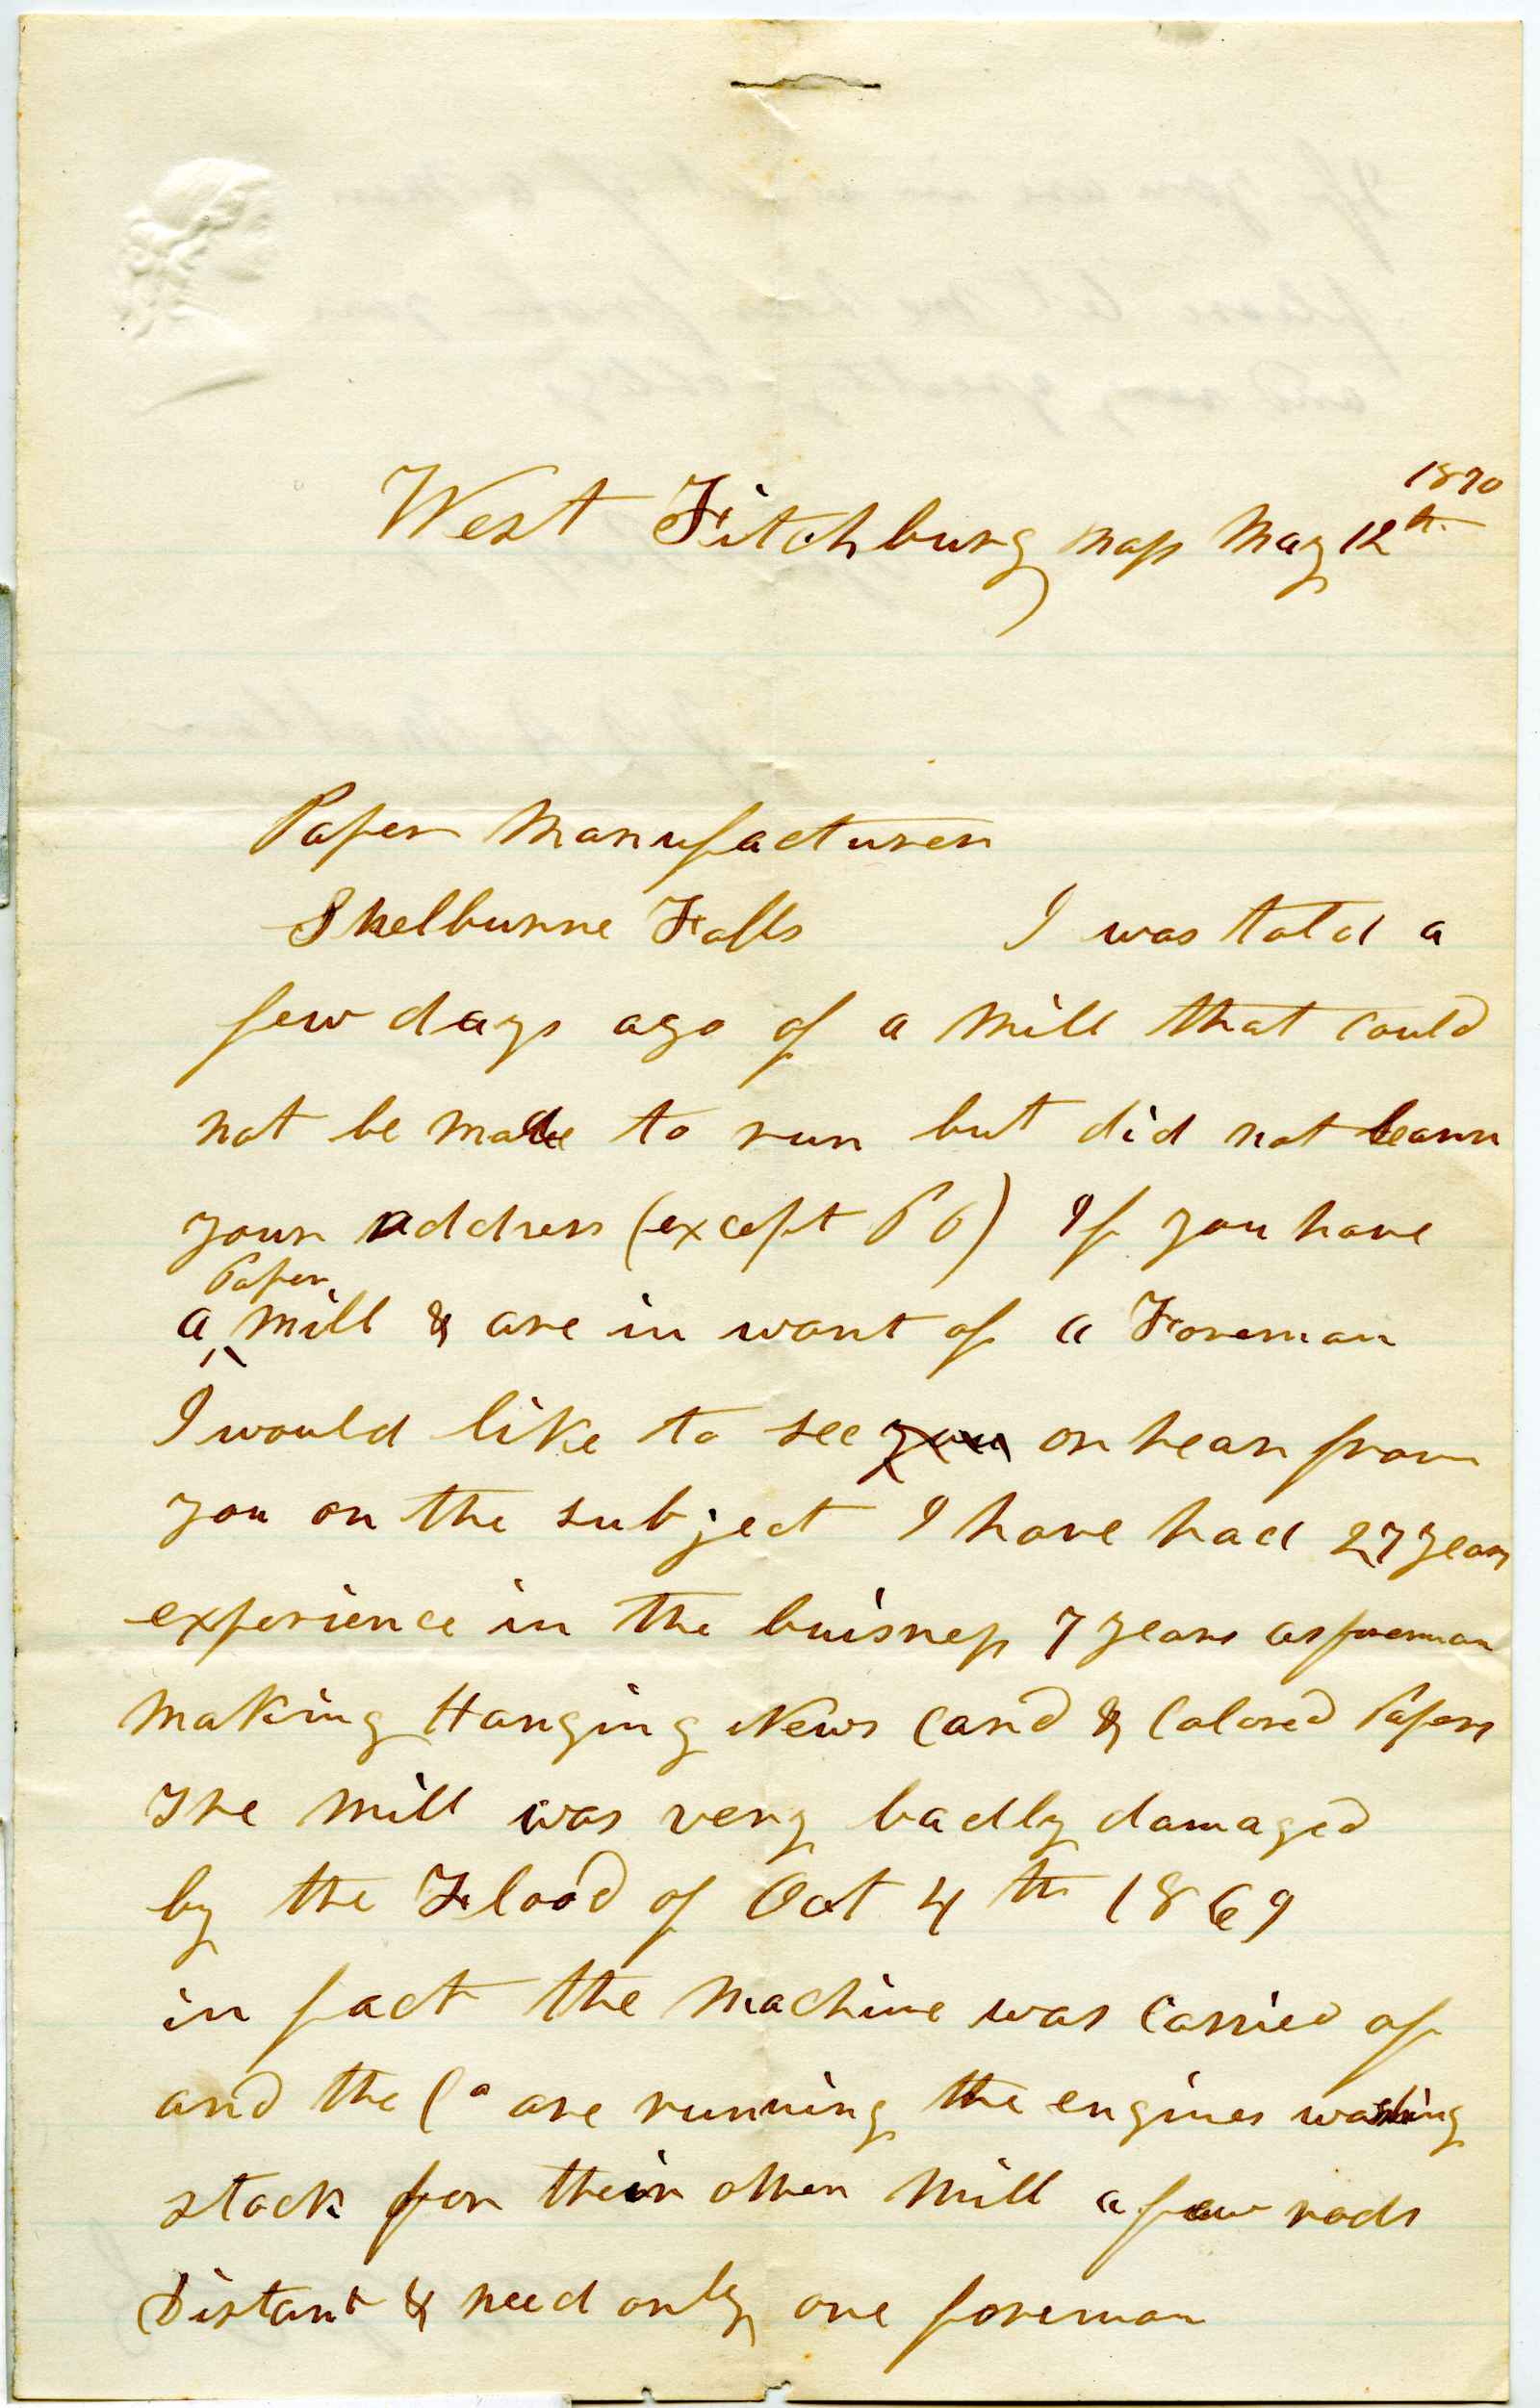 1870
West Fitchburg Mass May 12th
Paper Manufacturer
Shelburne Falls I was told a
few days ago of a Mill that could
not be made to run but did not learn
your address (except P O) If you have
Paper
a mill & are in want of a Foreman
I would like to see you or hear from
you on the subject I have had 27 years
experience in the buisness 7 years as foreman
Making Hanging News Card & Colored Papers
The Mill was very badly damaged
by the Flood of Oct 4th 1869
in fact the Machine was carried of
and the Co are running the engines washing
stock for their other Mill a few rods
Distant & need only one foreman